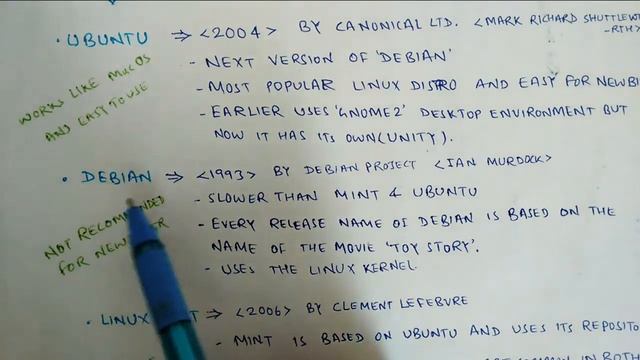 · UBUNTU ⇒ <2004> BY CANONICAL LTD. <MARK RICHARD SHUTTLEW
-RTH>
WORKS LIKE MACOS
AND EASY TO USE
- NEXT VERSION OF 'DEBIAN'
- MOST POPULAR LINUX DISTRO AND EASY FOR NEWBI
- EARLIER USES 'GNOME2' DESKTOP ENVIRONMENT BUT
NOW IT HAS ITS OWN (UNITY).
· DEBIAN ⇒ <1993> BY DEBIAN PROJECT <IAN MURDOCK>
NOT RECOMENDED
FOR NEW
- SLOWER THAN MINT & UBUNTU
- EVERY RELEASE NAME OF DEBIAN IS BASED ON THE
NAME OF THE MOVIE 'TOY STORY'.
- USES THE LINUX KERNEL
· LINUX T ⇒ <2006> BY CLEMENT LEFEBVRE
- MINT IS BASED ON UBUNTU AND USES ITS REPOSIT
IN BOTH